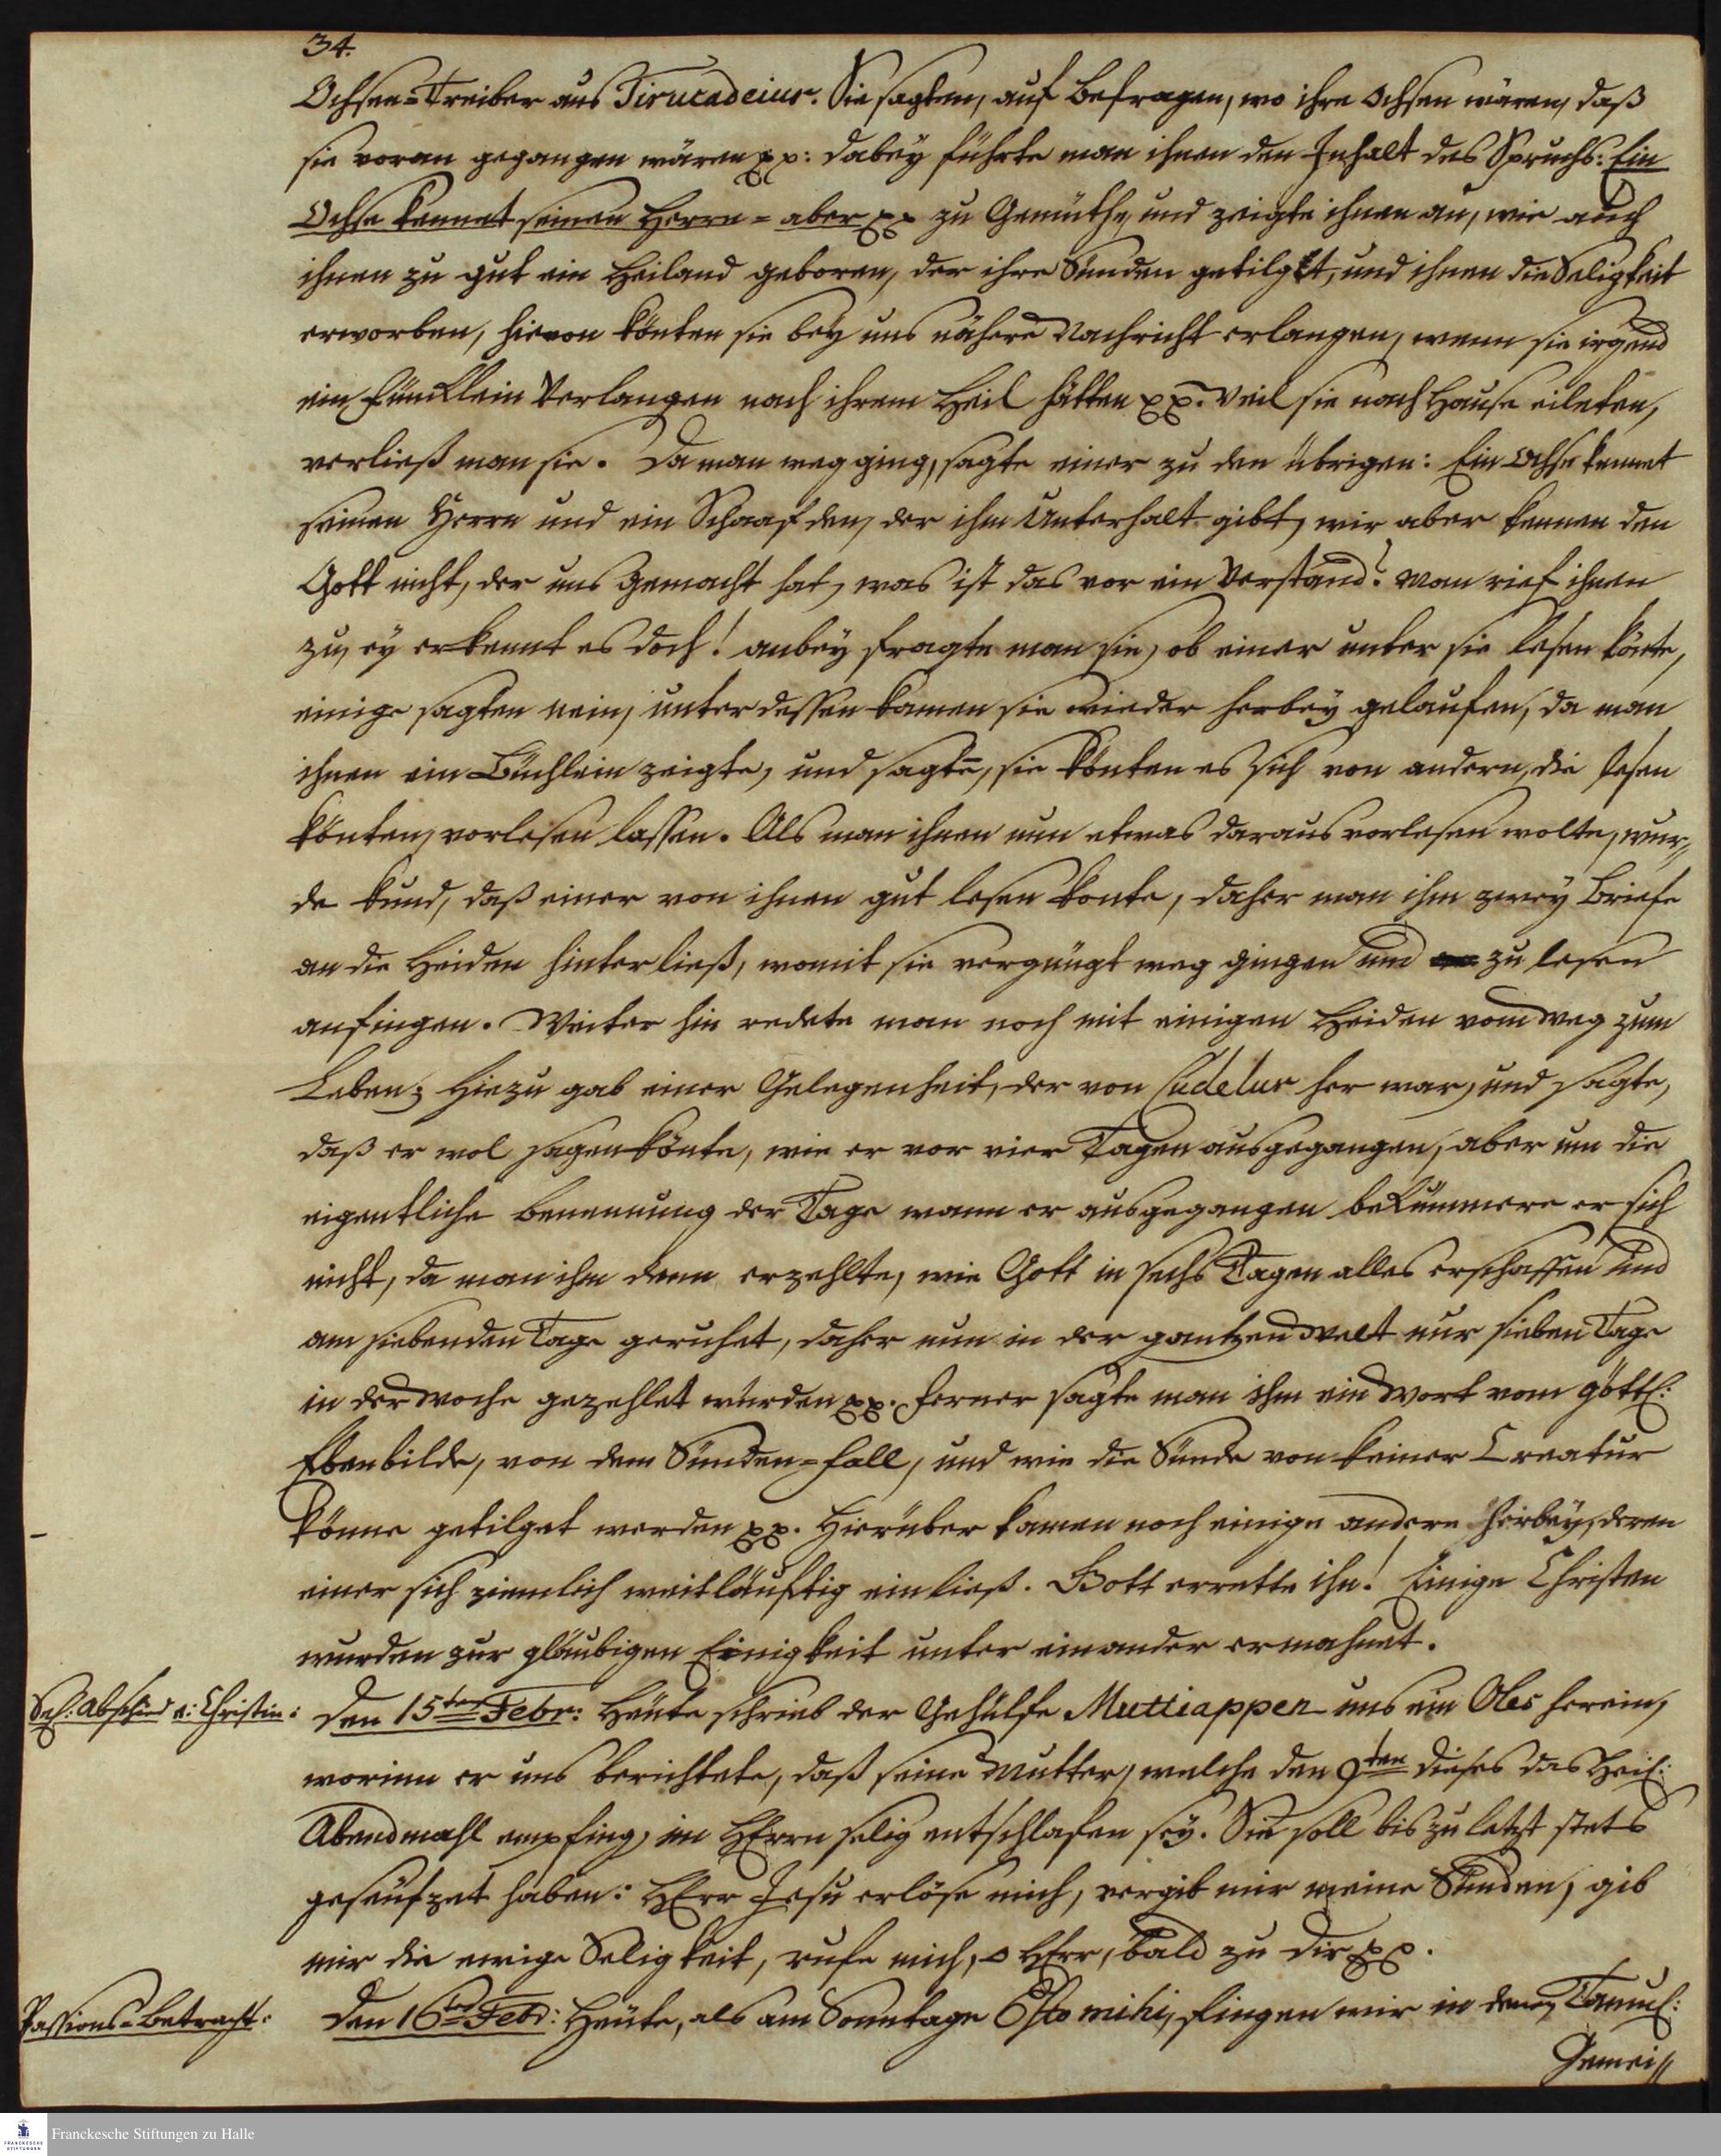 34.
Ochsen-Treiber aus Tirucadeiur. Sie sagten, auf Befragen, wo ihre Ochsen wären, daß
sie voran gegangen wären pp: dabey führte man ihnen den Inhalt des Spruchs: Ein
Ochse kennet seinen Herrn - aber pp zu Gemüthe, und zeigte ihnen an, wie auch
ihnen zu gut ein Heiland geboren, der ihre Sünden getilgt, und ihnen die Seligkeit
erworben, hievon könten sie bey uns nähere Nachricht erlangen, wenn sie irgend
ein Füncklein Verlangen nach ihrem Heil hätten pp. Weil sie nach Hause eileten,
verließ man sie. Da man weg ging, sagte einer zu den übrigen: Ein Ochse kennet
seinen Herrn und ein Schaaf den, der ihm Unterhalt gibt, wir aber kennen den
Gott nicht, der uns gemacht hat, was ist das vor ein Verstand? Man rief ihnen
zu, ey erkennt es doch! anbey fragte man sie, ob einer unter sie lesen könte,
einige sagten nein, unterdessen kamen sie wieder herbey gelaufen, da man
ihnen ein Büchlein zeigte, und sagte, sie könten es sich von andern, die lesen
könten, vorlesen lassen. Als man ihnen nun etwas daraus vorlesen wolte, wur-
de kund, daß einer von ihnen gut lesen konte, daher man ihm zwey Briefe
an die Heiden hinterließ, womit sie vergnügt weg gingen und zu lesen
anfingen. Weiter hin redete man noch mit einigen Heiden vom Weg zum
Leben; hiezu gab einer Gelegenheit, der von Cudelur her war, und sagte,
daß er wol sagen könte, wie er vor vier Tagen ausgegangen, aber um die
eigentliche Benennung der Tage wann er ausgegangen beKümmere er sich
nicht, da man ihm denn erzehlte, wie Gott in sechs Tagen alles erschaffen und
am siebenden Tage geruhet, daher nun in der gantzen Welt nur sieben Tage
in der Woche gezehlet würden pp. Ferner sagte man ihm ein Wort vom göttl:
Ebenbilde, von dem Sünden-Fall, und wie die Sünde von keiner Creatur
könne getilget werden pp. Hierüber kamen noch einige andere herbey, deren
einer sich ziemlich weitläuftig einließ. Gott errette ihn! Einige Christen
wurden zur gläubigen Einigkeit unter einander ermahnet.
Sel: Abschied e: Christin:
Den 15ten Febr: Heute schrieb der Gehülfe Muttiappen uns ein Oles herein,
worinn er uns berichtete, daß seine Mutter, welche den 9ten dieses das Heil:
Abendmahl empfing, im HErrn selig entschlafen sey. Sie soll bis zu letzt stets
geseufzet haben: HErr Jesu erlöse mich, vergib mir meine Sünden, gib
mir die ewige Seligkeit, rufe mich, o HErr, bald zu dir pp.
Passions-Betracht:
Den 16ten Febr: Heute, als am Sonntage Esto mihi, fingen wir in der Tamul:
Gemei-
Franckesche Stiftungen zu Halle